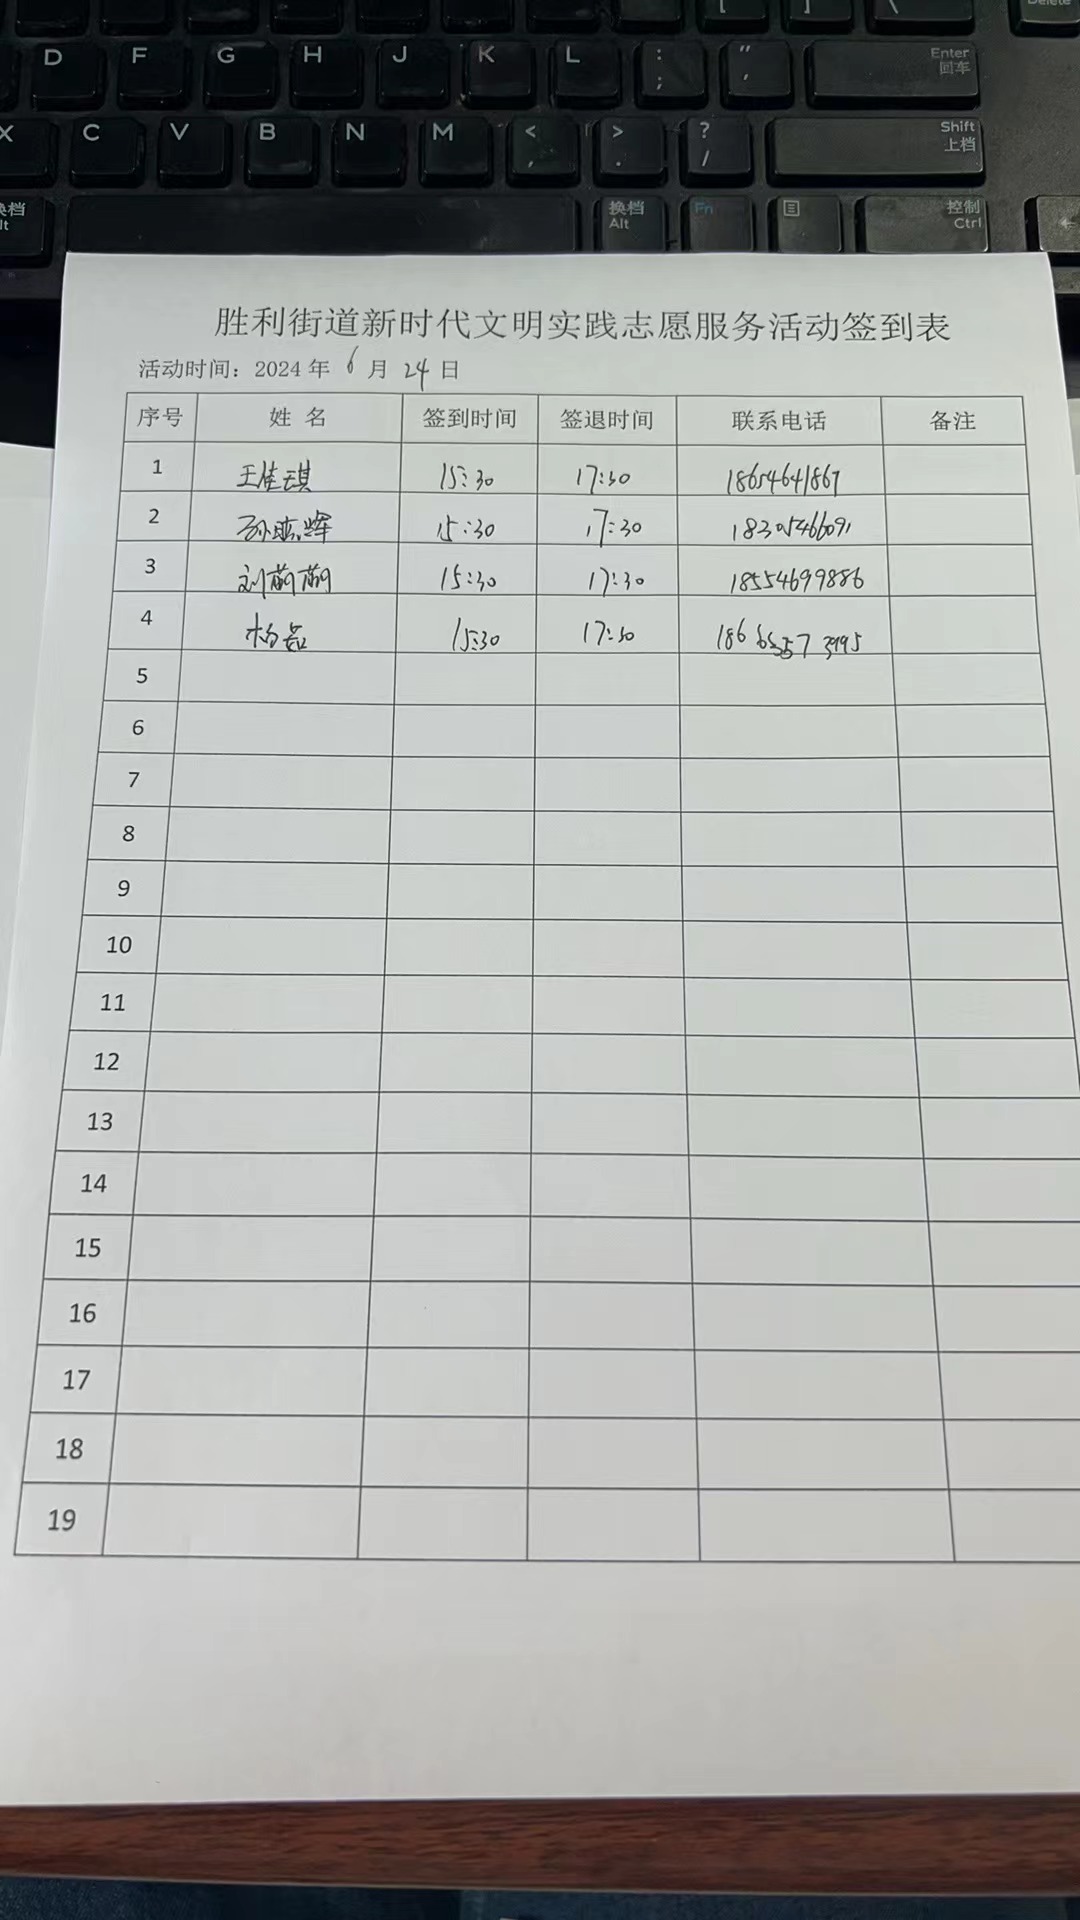 [ ] \ Delete
D F G H J K L : ; " ' Enter 回车
X C V B N M < , > . ? / Shift 上档
换档 Alt 换档 Alt Fn 控制 Ctrl
胜利街道新时代文明实践志愿服务活动签到表
活动时间：2024 年 6 月 24 日
序号 姓 名 签到时间 签退时间 联系电话 备注
1 王佳琪 15:30 17:30 18654641867
2 15:30 17:30 18305466091
3 刘萌萌 15:30 17:30 18554699886
4 杨磊 15:30 17:30
5
6
7
8
9
10
11
12
13
14
15
16
17
18
19